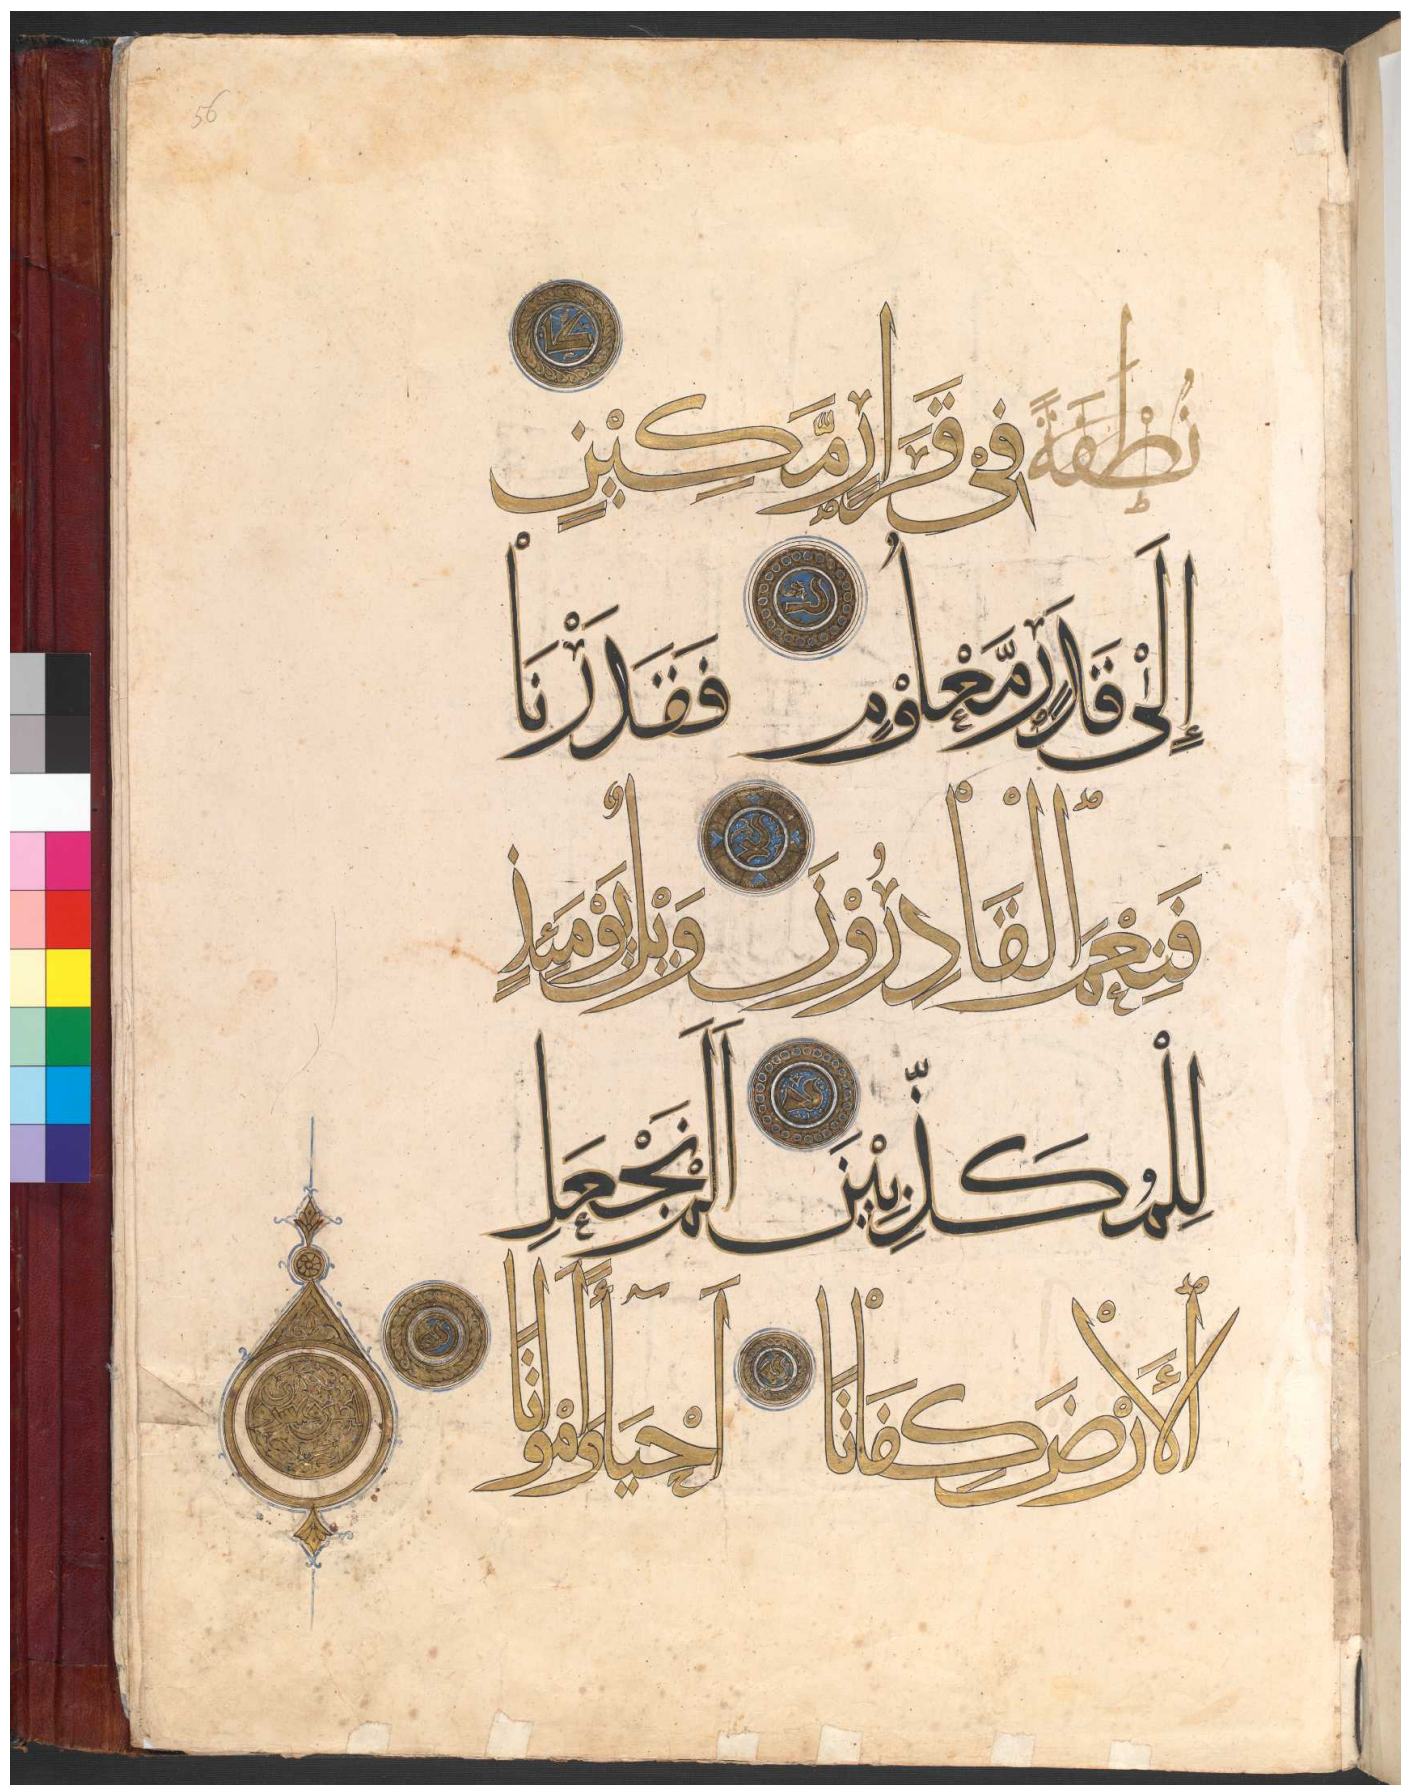 56
نُطْفَةً فِىْ قَرَارٍ مَّكِيْنٍ
إِلَىٰ قَدَرٍ مَّعْلُوْمٍ فَقَدَرْنَا
فَنِعْمَ الْقَادِرُوْنَ وَيْلٌ يَوْمَئِذٍ
لِلْمُكَذِّبِيْنَ أَلَمْ نَجْعَلِ
الْأَرْضَ كِفَاتًا أَحْيَآءً وَأَمْوَاتًا